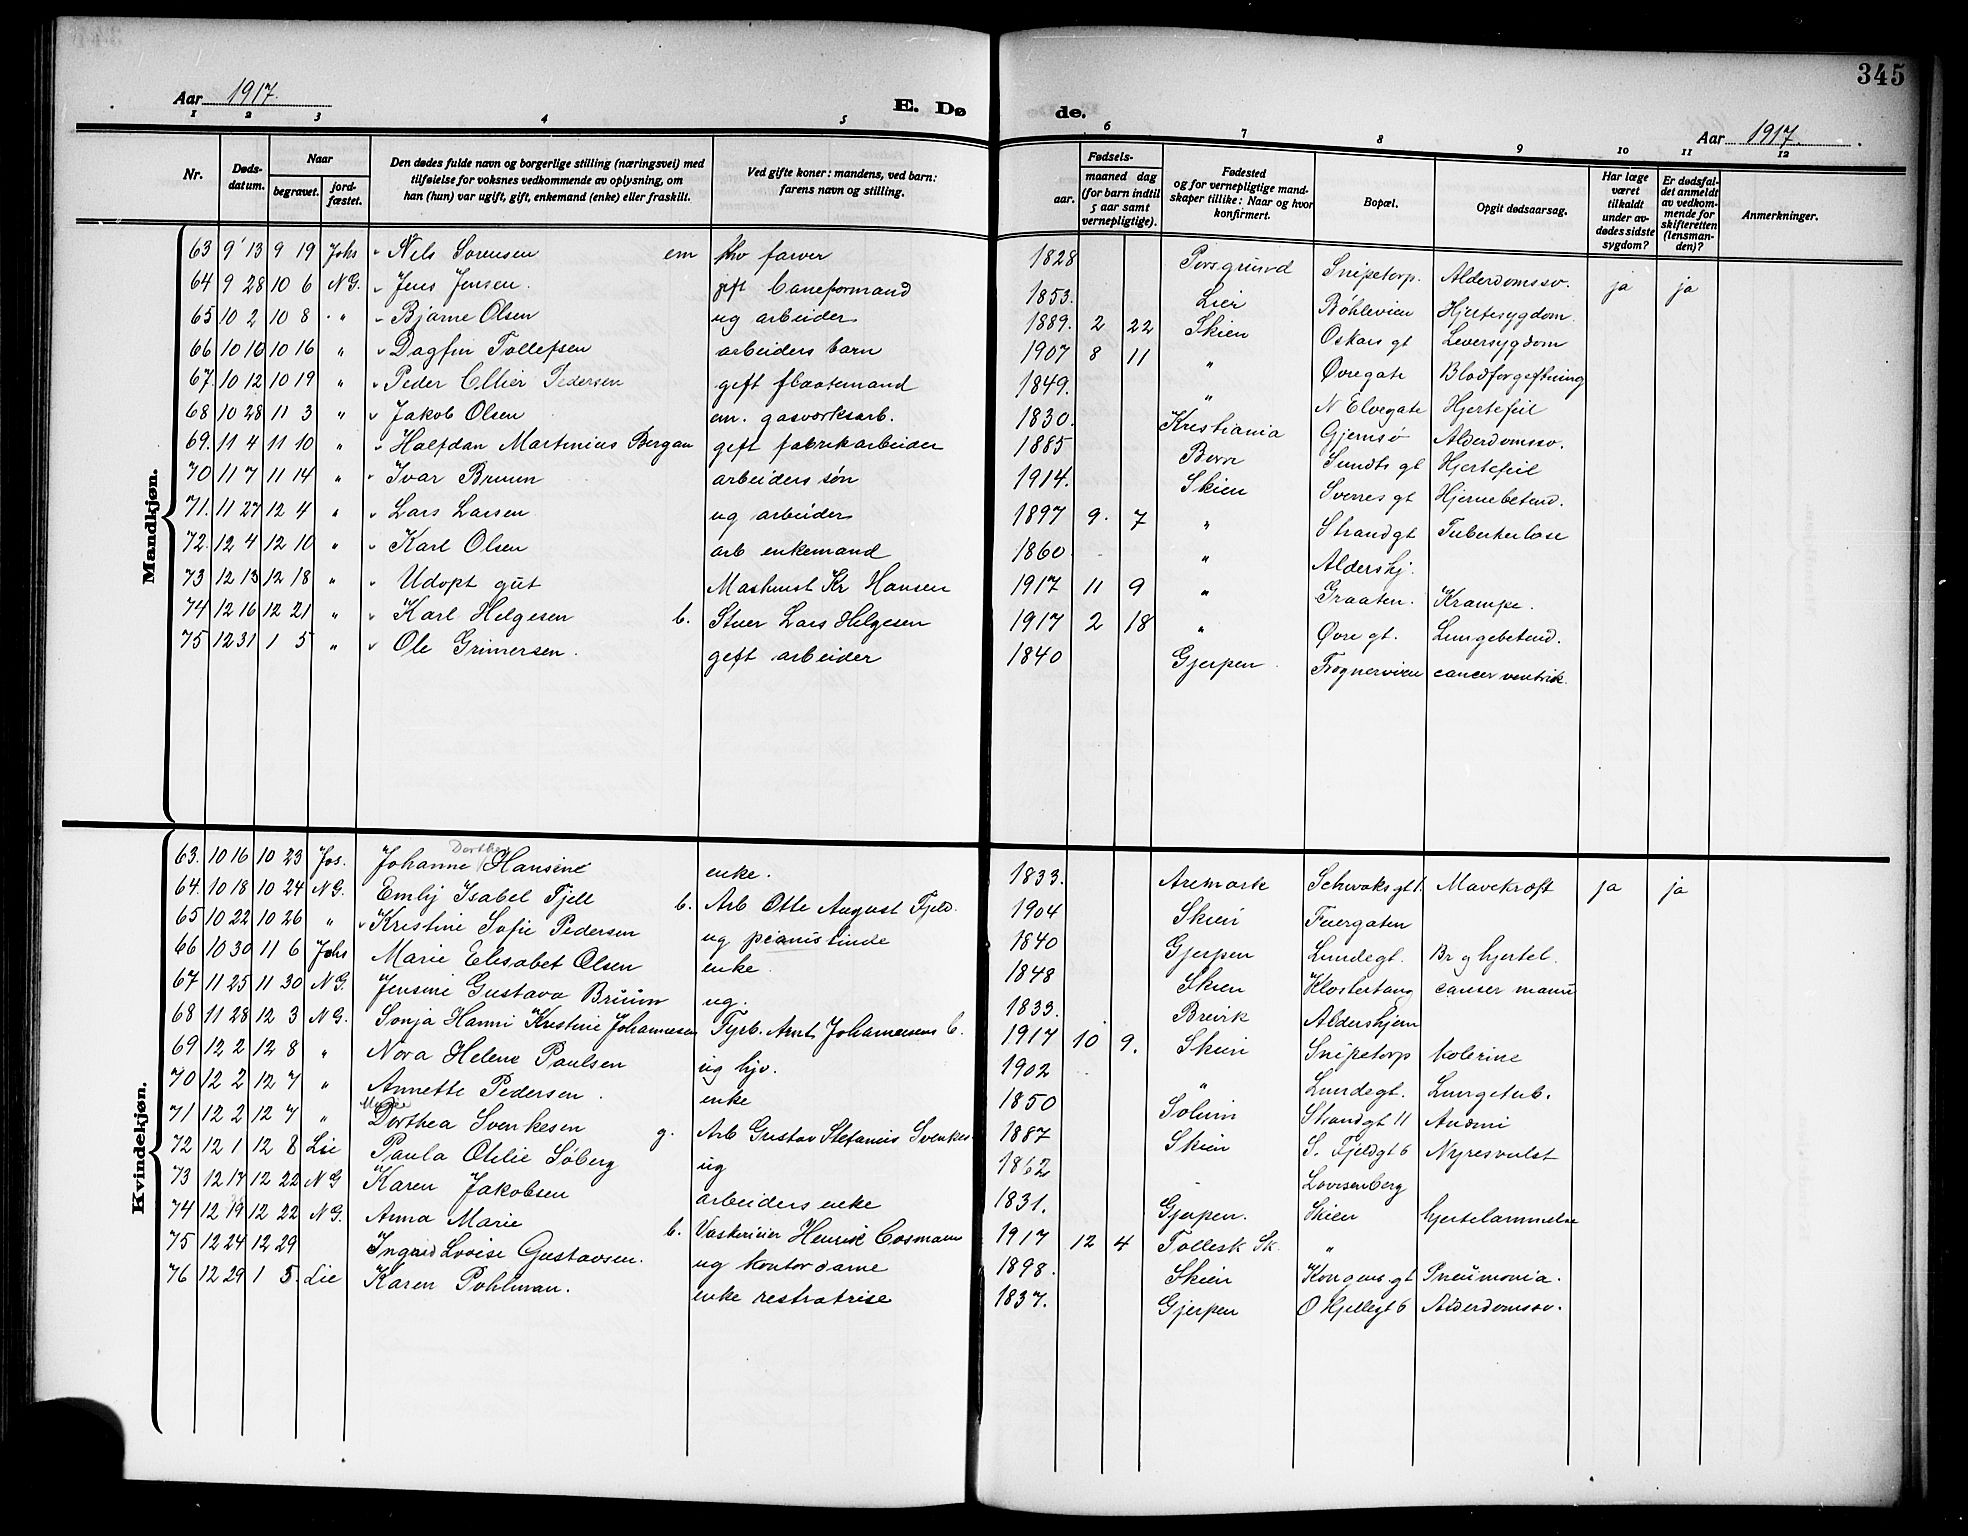 345
Aar 1917.
E. Dø
de.
Aar 1917.
1 2 3 4 5 6 7 8 9 10 11 12
Nr.
Døds-datum.
Naar
begravet.
jord-fæstet.
Den dødes fulde navn og borgerlige stilling (næringsvei) med tilføielse for voksnes vedkommende av oplysning, om han (hun) var ugift, gift, enkemand (enke) eller fraskilt.
Ved gifte koner: mandens, ved barn: farens navn og stilling.
Fødsels-
aar.
maaned dag (for barn indtil 5 aar samt vernepligtige).
Fødested og for vernepligtige mandskaper tillike: Naar og hvor konfirmert.
Bopæl.
Opgit dødsaarsag.
Har læge været tilkaldt under avdødes sidste sygdom?
Er dødsfaldet anmeldt av vedkommende for skifteretten (lensmanden)?
Anmerkninger.
Mandkjøn.
63 9 13 9 19 Johs Nils Sørensen em farver 1828 Porsgrund Snipetorp. Alderdomssv. ja ja
64 9 28 10 6 N.G. Jens Jensen. gift baneformand 1853. Lier Bøhlevien Hjertesygdom.
65 10 2 10 8 " Bjarne Olsen ug arbeider 1889. 2 22 Skien Oskars gt Leversygdom
66 10 10 10 16 " Dagfin Tollefsen arbeiders barn 1907 8 11 " Øvregate Blodforgiftning
67. 10 12 10 19 " Peder Pedersen gift flaatemand 1849. " N Elvegate Hjertefeil
68 10 28 11 3 " Jakob Olsen em. gasverksarb. 1830. Kristiania Gjemsø Alderdomssv.
69. 11 4 11 10 " Halfdan Martinius Bergan gift fabrikarbeider 1885 Borre Sundts gt Hjertefeil
70 11 7 11 14 " Ivar Bruun arbeiders søn 1914. Skien Sverres gt Hjernebetend.
71. 11 27 12 4 " Lars Larsen ug arbeider 1897 9. 7 " Strandgt Tuberkulose
72. 12 4 12 10 " Karl Olsen arb enkemand 1860 " Aldershj.
73 12 13 12 18 " Udøpt gut Maskinist Kr Hansen 1917 11 9 " Graaten. Krampe.
74 12 16 12 21 " Karl Helgesen b. Stuer Lars Helgesen 1917 2 18 " Øvre gt. Lungebetend.
75 12 31 1 5 " Ole Grimersen. gift arbeider 1840 Gjerpen. Frognerveien cancer ventrik.
Kvindekjøn.
63. 10 16 10 23 Jos. Johanne Dorthea Hansine enke. 1833. Aremark Schwaks gt 1. Mavekræft ja ja
64. 10 18 10 24 N G. Emly Isabel Fjeld b. Arb Otto August Fjeld. 1904 Skien Fuergaten
65 10 22 10 26 " Kristine Sofie Pedersen ug pianistinde 1840 Gjerpen Lundegt. Br og hjertel.
66 10 30 11 6 Johs Marie Elisabet Olsen enke. 1848 Skien Klostertang canser mam
67 11 25 11 30 N G. Jensine Gustava Bruun ug. 1833. Brevik Aldershjem
68 11 28 12 3 N G. Sonja Hanni Kristine Johannesen Fyrb. Arnt Johannesens b. 1917 10 9. Skien Snipetorp kolerine
69 12 2 12 8 " Nora Helene Paulsen ug hjv. 1902 " Lundegt. Lungetub.
70 12 2 12 7 " Annette Pedersen. enke 1850 Solum Strandgt 11 Anæmi
71 12 2 12 7 " Marie Dorthea Svenkesen g. Arb Gustav Stefanus Svenkes. 1887 Skien S. Fjeldgt 6 Nyresvulst
72 12 1 12 8 Lie Paula Otilie Søberg ug 1862 Lovisenberg
73 12 17 12 22 N G Karen Jakobsen arbeiders enke 1831. Gjerpen. Skien hjertelammelse
74 12 19 12 22 N G. Anna Marie b. Vaskerieier Henrik Cosmann 1917 12 4 Follesk Sk. "
75 12 24 12 29 Ingrid Lovise Gustavsen. ug kontordame 1898. Skien Kongens gt Pneumonia.
76 12 29 1 5. Lie Karen Pohlman. enke 1837. Gjerpen Ø Hjellegt 6 Alderdomssv.